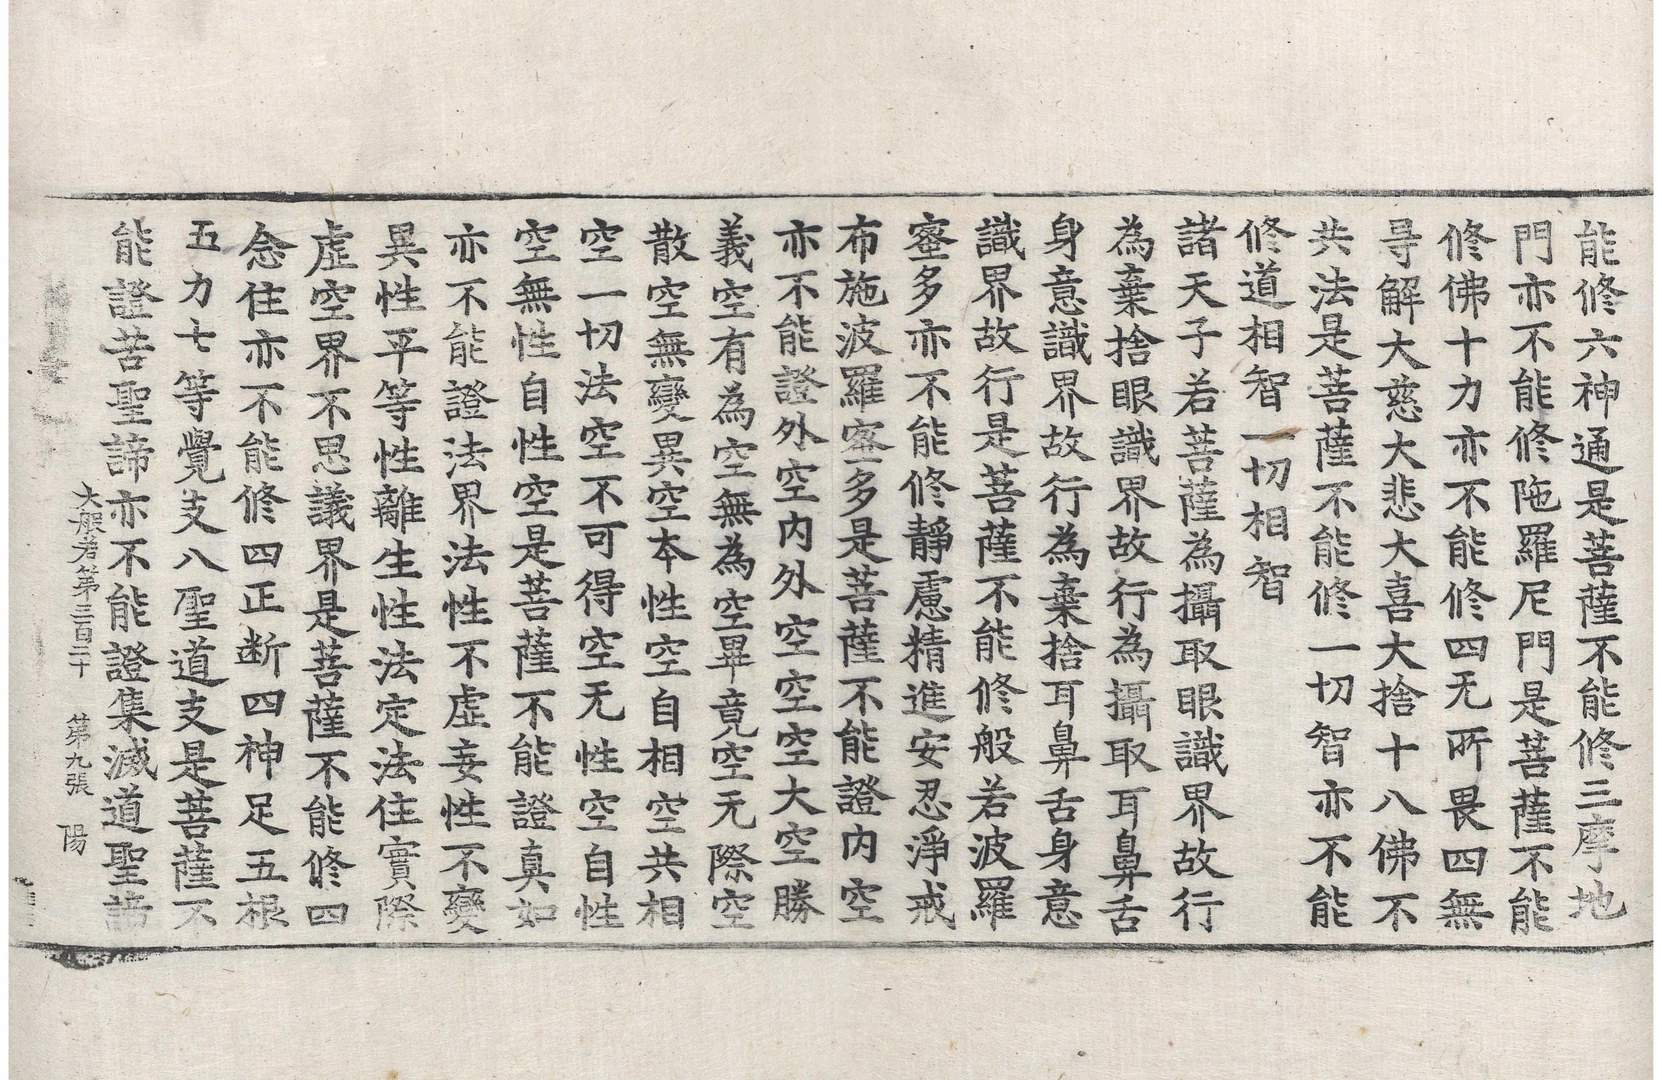 能修六神通是菩薩不能修三摩地
門亦不能修陁羅尼門是菩薩不能
修佛十力亦不能修四无所畏四無
㝵解大慈大悲大喜大捨十八佛不
共法是菩薩不能修一切智亦不能
修道相智一切相智
諸天子若菩薩為攝取眼識界故行
為棄捨眼識界故行為攝取耳鼻舌
身意識界故行為棄捨耳鼻舌身意
識界故行是菩薩不能修般若波羅
蜜多亦不能修靜慮精進安忍淨戒
布施波羅蜜多是菩薩不能證內空
亦不能證外空內外空空空大空勝
義空有為空無為空畢竟空无際空
散空無變異空本性空自相空共相
空一切法空不可得空无性空自性
空無性自性空是菩薩不能證真如
亦不能證法界法性不虛妄性不變
異性平等性離生性法定法住實際
虛空界不思議界是菩薩不能修四
念住亦不能修四正断四神足五根
五力七等覺支八聖道支是菩薩不
能證苦聖諦亦不能證集滅道聖諦
大般若第三百二十 第九張 陽